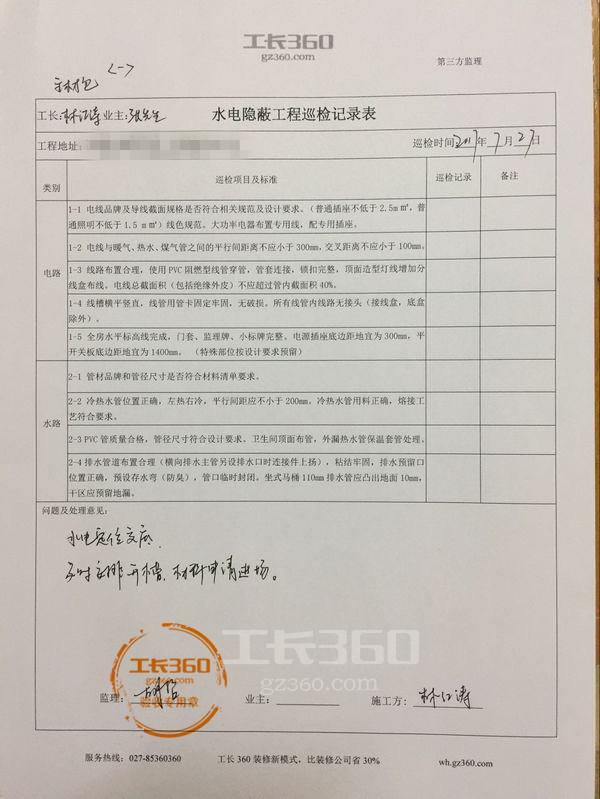 工长360
gz360.com
第三方监理
主材包 <一>
工长: 林江涛 业主: 张先生 水电隐蔽工程巡检记录表
工程地址: 巡检时间 2017 年 7 月 27 日
类别 巡检项目及标准 巡检记录 备注
电路
1-1 电线品牌及导线截面规格是否符合相关规范及设计要求。（普通插座不低于2.5m㎡,普
通照明不低于1.5 m㎡）线色规范。大功率电器布置专用线，配专用插座。
1-2 电线与暖气、热水、煤气管之间的平行间距离不应小于300mm,交叉距离不应小于100mm。
1-3 线路布置合理，使用PVC阻燃型线管穿管，管套连接，锁扣完整，顶面造型灯线增加分
线盒布线。电线总截面积（包括绝缘外皮）不应超过管内截面积40%。
1-4 线槽横平竖直，线管用管卡固定牢固，无破损。所有线管内线路无接头（接线盒，底盒
除外）。
1-5 全房水平标高线完成，门套、监理牌、小标牌完整。电源插座底边距地宜为300mm，平
开关板底边距地宜为1400mm。（特殊部位按设计要求预留）
水路
2-1 管材品牌和管径尺寸是否符合材料清单要求。
2-2 冷热水管位置正确，左热右冷，平行间距应不小于200mm。冷热水管用料正确，熔接工
艺符合要求。
2-3 PVC管质量合格，管径尺寸符合设计要求、卫生间顶面布管，外漏热水管保温套管处理。
2-4 排水管道布置合理（横向排水主管另设排水口时连接件上扬），粘结牢固，排水预留口
位置正确，预设存水弯（防臭），管口临时封闭。坐式马桶110mm排水管应凸出地面10mm，
干区应预留地漏。
问题及处理意见：
水电定位交底,
及时安排开槽、材料申请进场。
工长360
gz360.com
工长360
gz360.com
验收专用章
监理: 业主: 施工方: 林江涛
服务热线: 027-85360360 工长360装修新模式，比装修公司省30% wh.gz360.com